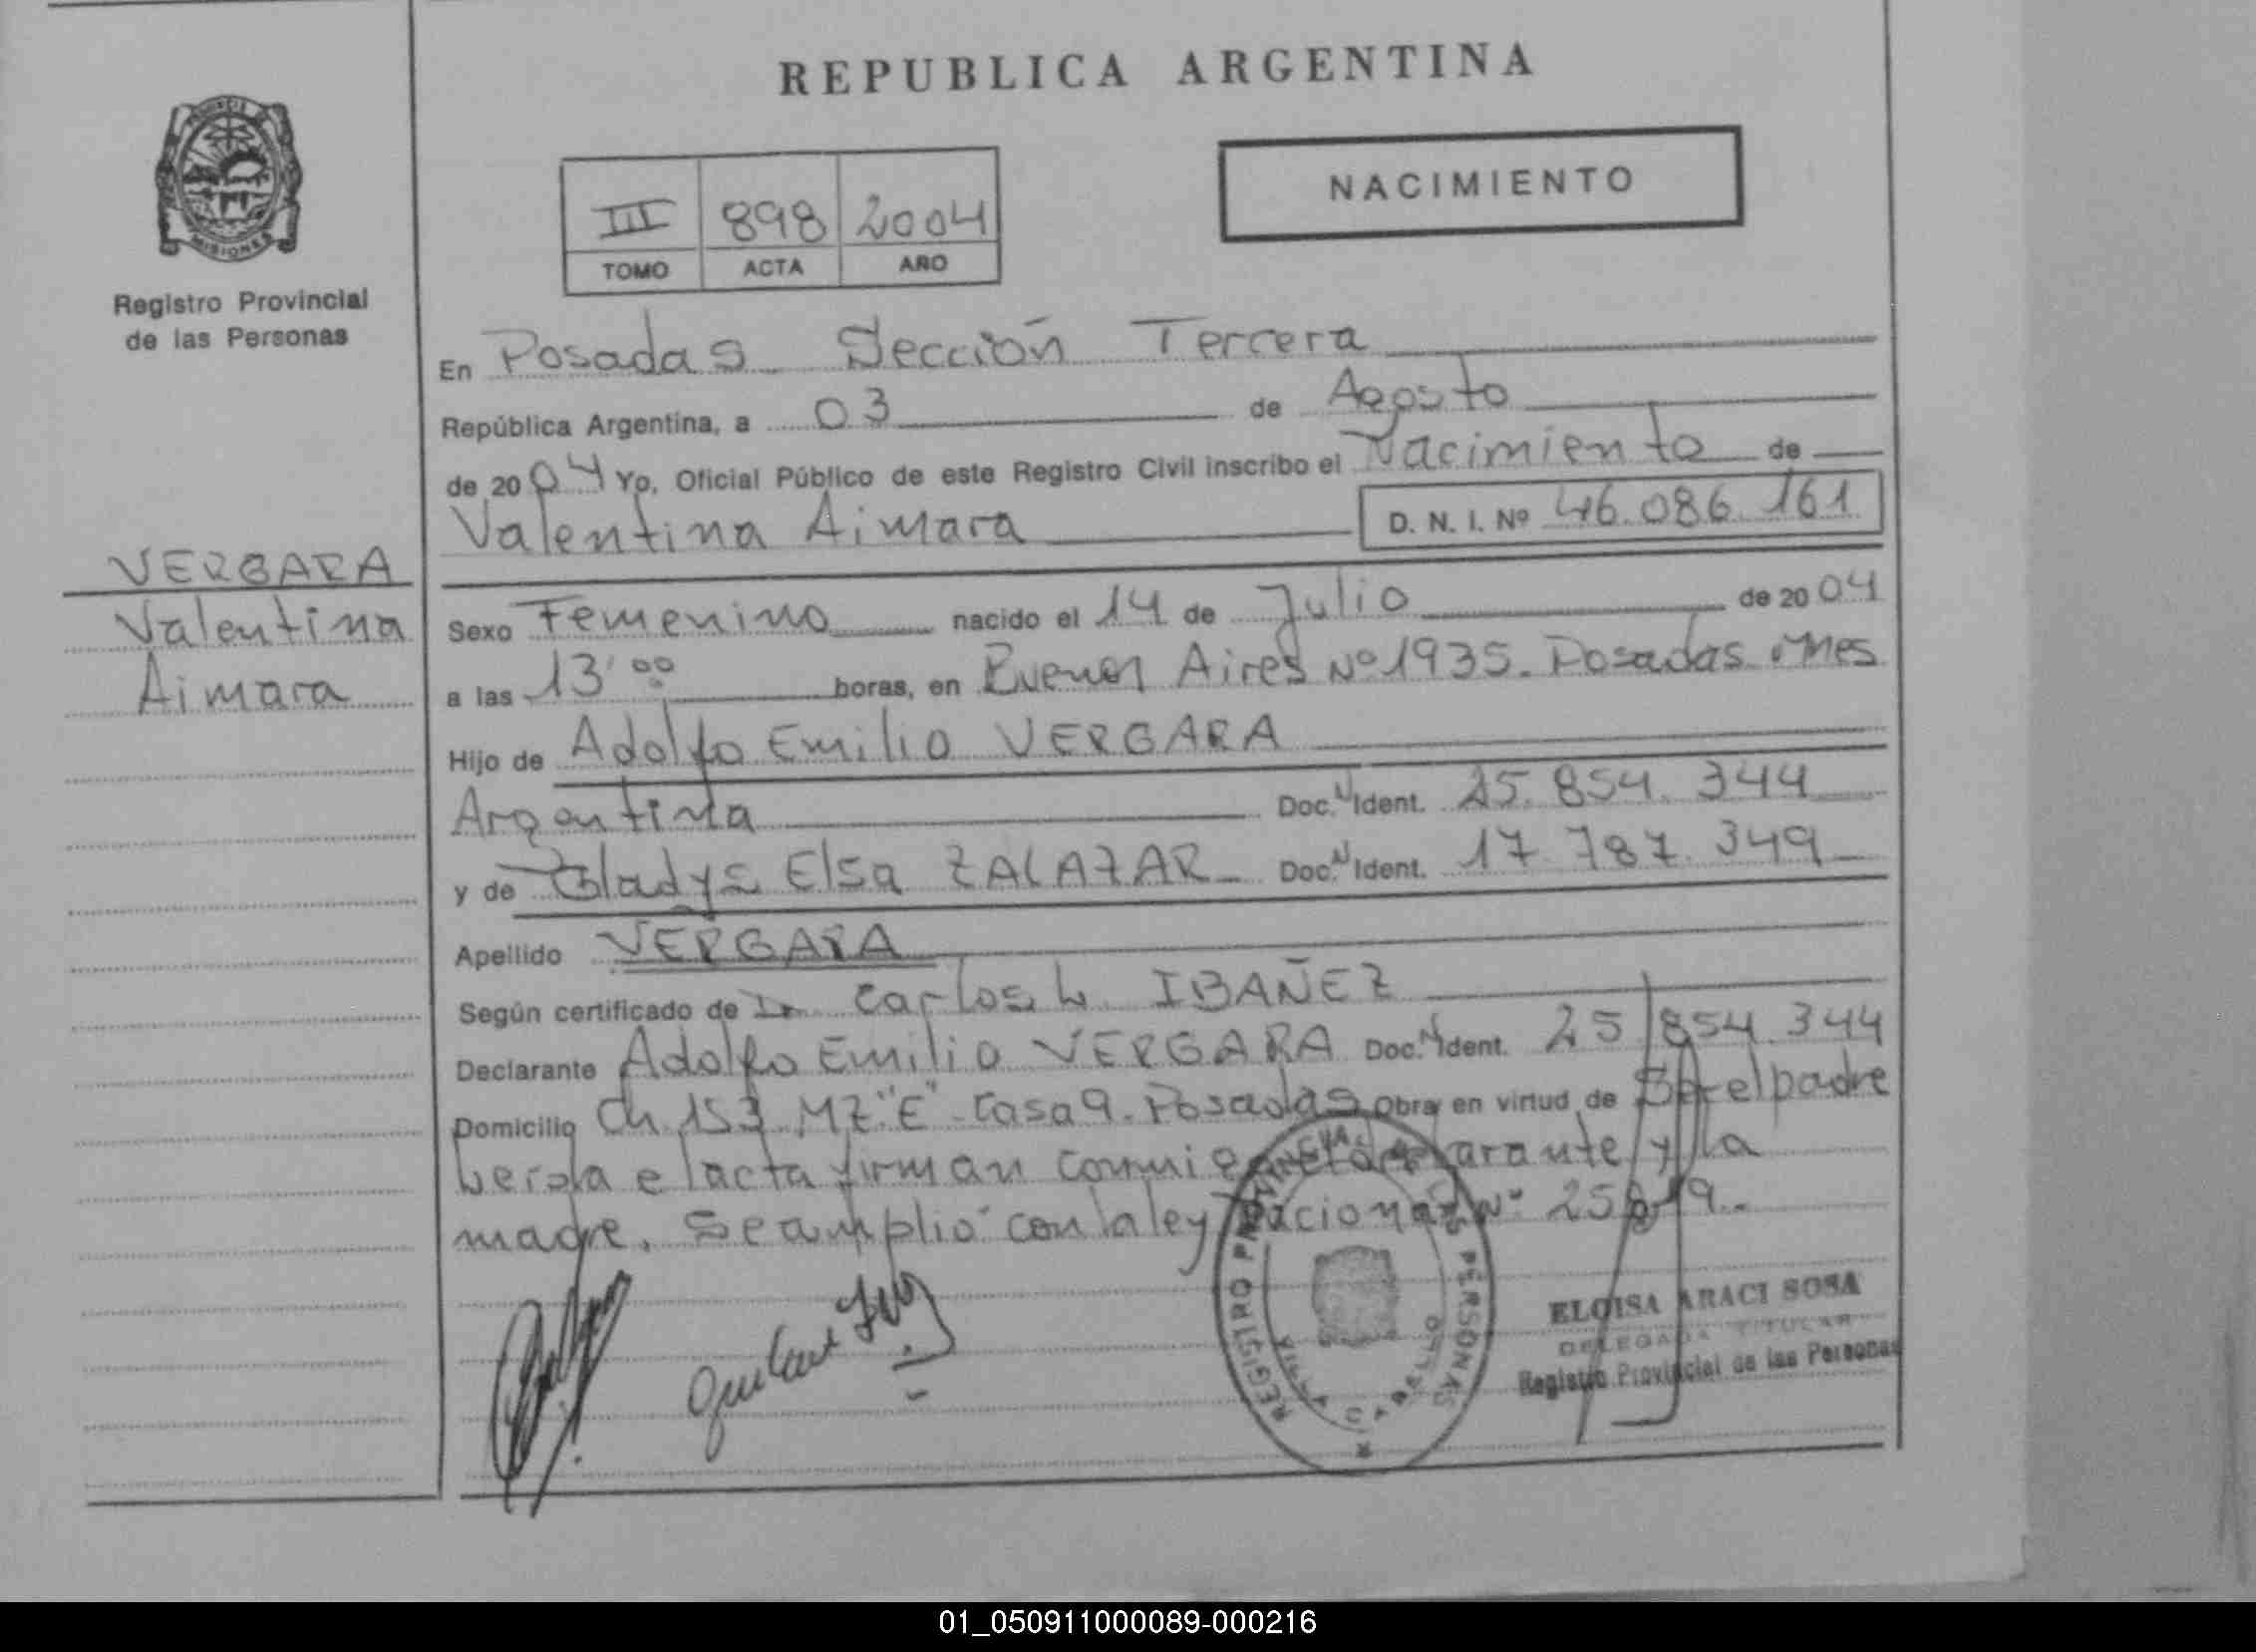 REPUBLICA ARGENTINA
MISIONES
Registro Provincial
de las Personas
NACIMIENTO
III 898 2004
TOMO ACTA AÑO
VERGARA
Valentina
Aimara
En Posadas Sección Tercera
República Argentina, a 03 de Agosto
de 2004 Yo, Oficial Público de este Registro Civil inscribo el Nacimiento de
Valentina Aimara D. N. I. Nº 46.086.161
Sexo Femenino nacido el 14 de Julio de 2004
a las 13'00 horas, en Buenos Aires Nº 1935. Posadas Mnes
Hijo de Adolfo Emilio VERGARA
Argentina Doc. Ident. 25.854.344
y de Gladys Elsa ZALAZAR Doc. Ident. 17.787.349
Apellido VERGARA
Según certificado de Dr. Carlos L. IBAÑEZ
Declarante Adolfo Emilio VERGARA Doc. Ident. 25.854.344
Domicilio Ch 153 MZ "E" Casa 9. Posadas Obra en virtud de el padre
acta firman conmigo el declarante y la
madre. Se amplio con la ley Nacional Nº
REGISTRO PROVINCIAL PERSONAS
VILLA CABELLO
ELOISA ARACI SOSA
DELEGADA TITULAR
Registro Provincial de las Personas
01_050911000089-000216